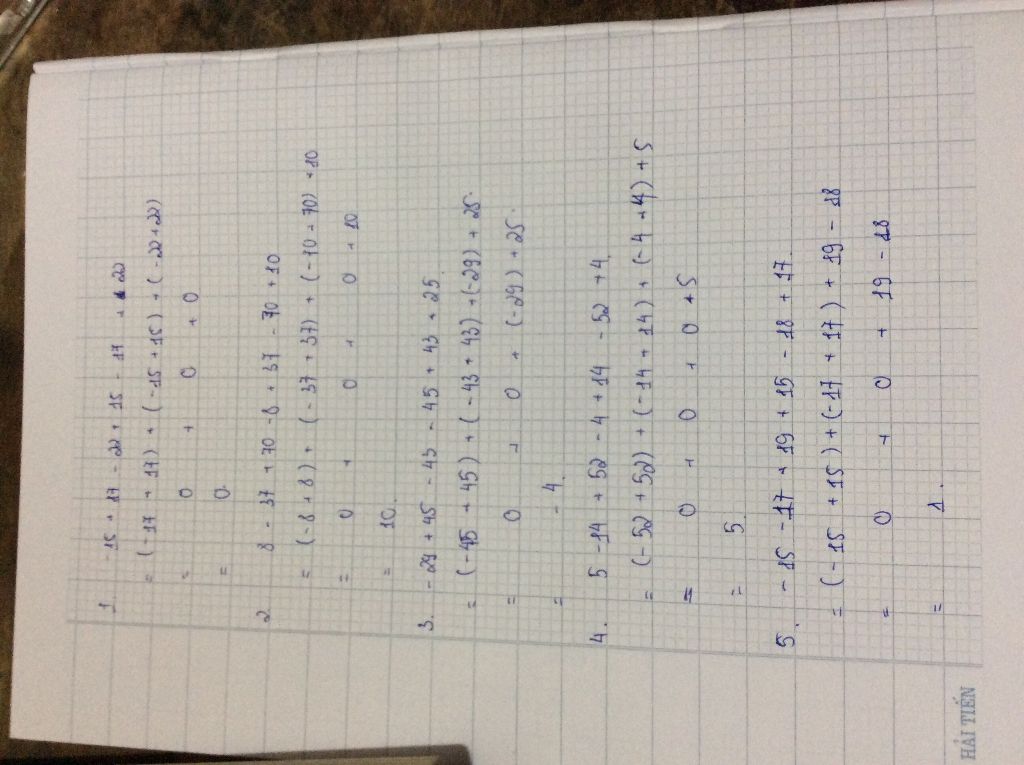 1. -15 + 17 - 22 + 15 - 17 + 22
= (-17 + 17) + (-15 + 15) + (-22 + 22)
= 0 + 0 + 0
= 0.
2 8 - 37 + 70 - 8 + 37 - 70 + 10
= (-8 + 8) + (-37 + 37) + (-70 + 70) + 10
= 0 + 0 + 0 + 10
= 10.
3. -29 + 45 - 43 - 45 + 43 + 25.
= (-45 + 45) + (-43 + 43) + (-29) + 25.
= 0 + 0 + (-29) + 25.
= -4.
4. 5 - 14 + 52 - 4 + 14 - 52 + 4.
= (-52 + 52) + (-14 + 14) + (-4 + 4) + 5
= 0 + 0 + 0 + 5
= 5.
5. -15 - 17 + 19 + 15 - 18 + 17.
= (-15 + 15) + (-17 + 17) + 19 - 18
= 0 + 0 + 19 - 18
= 1.
HẢI TIẾN